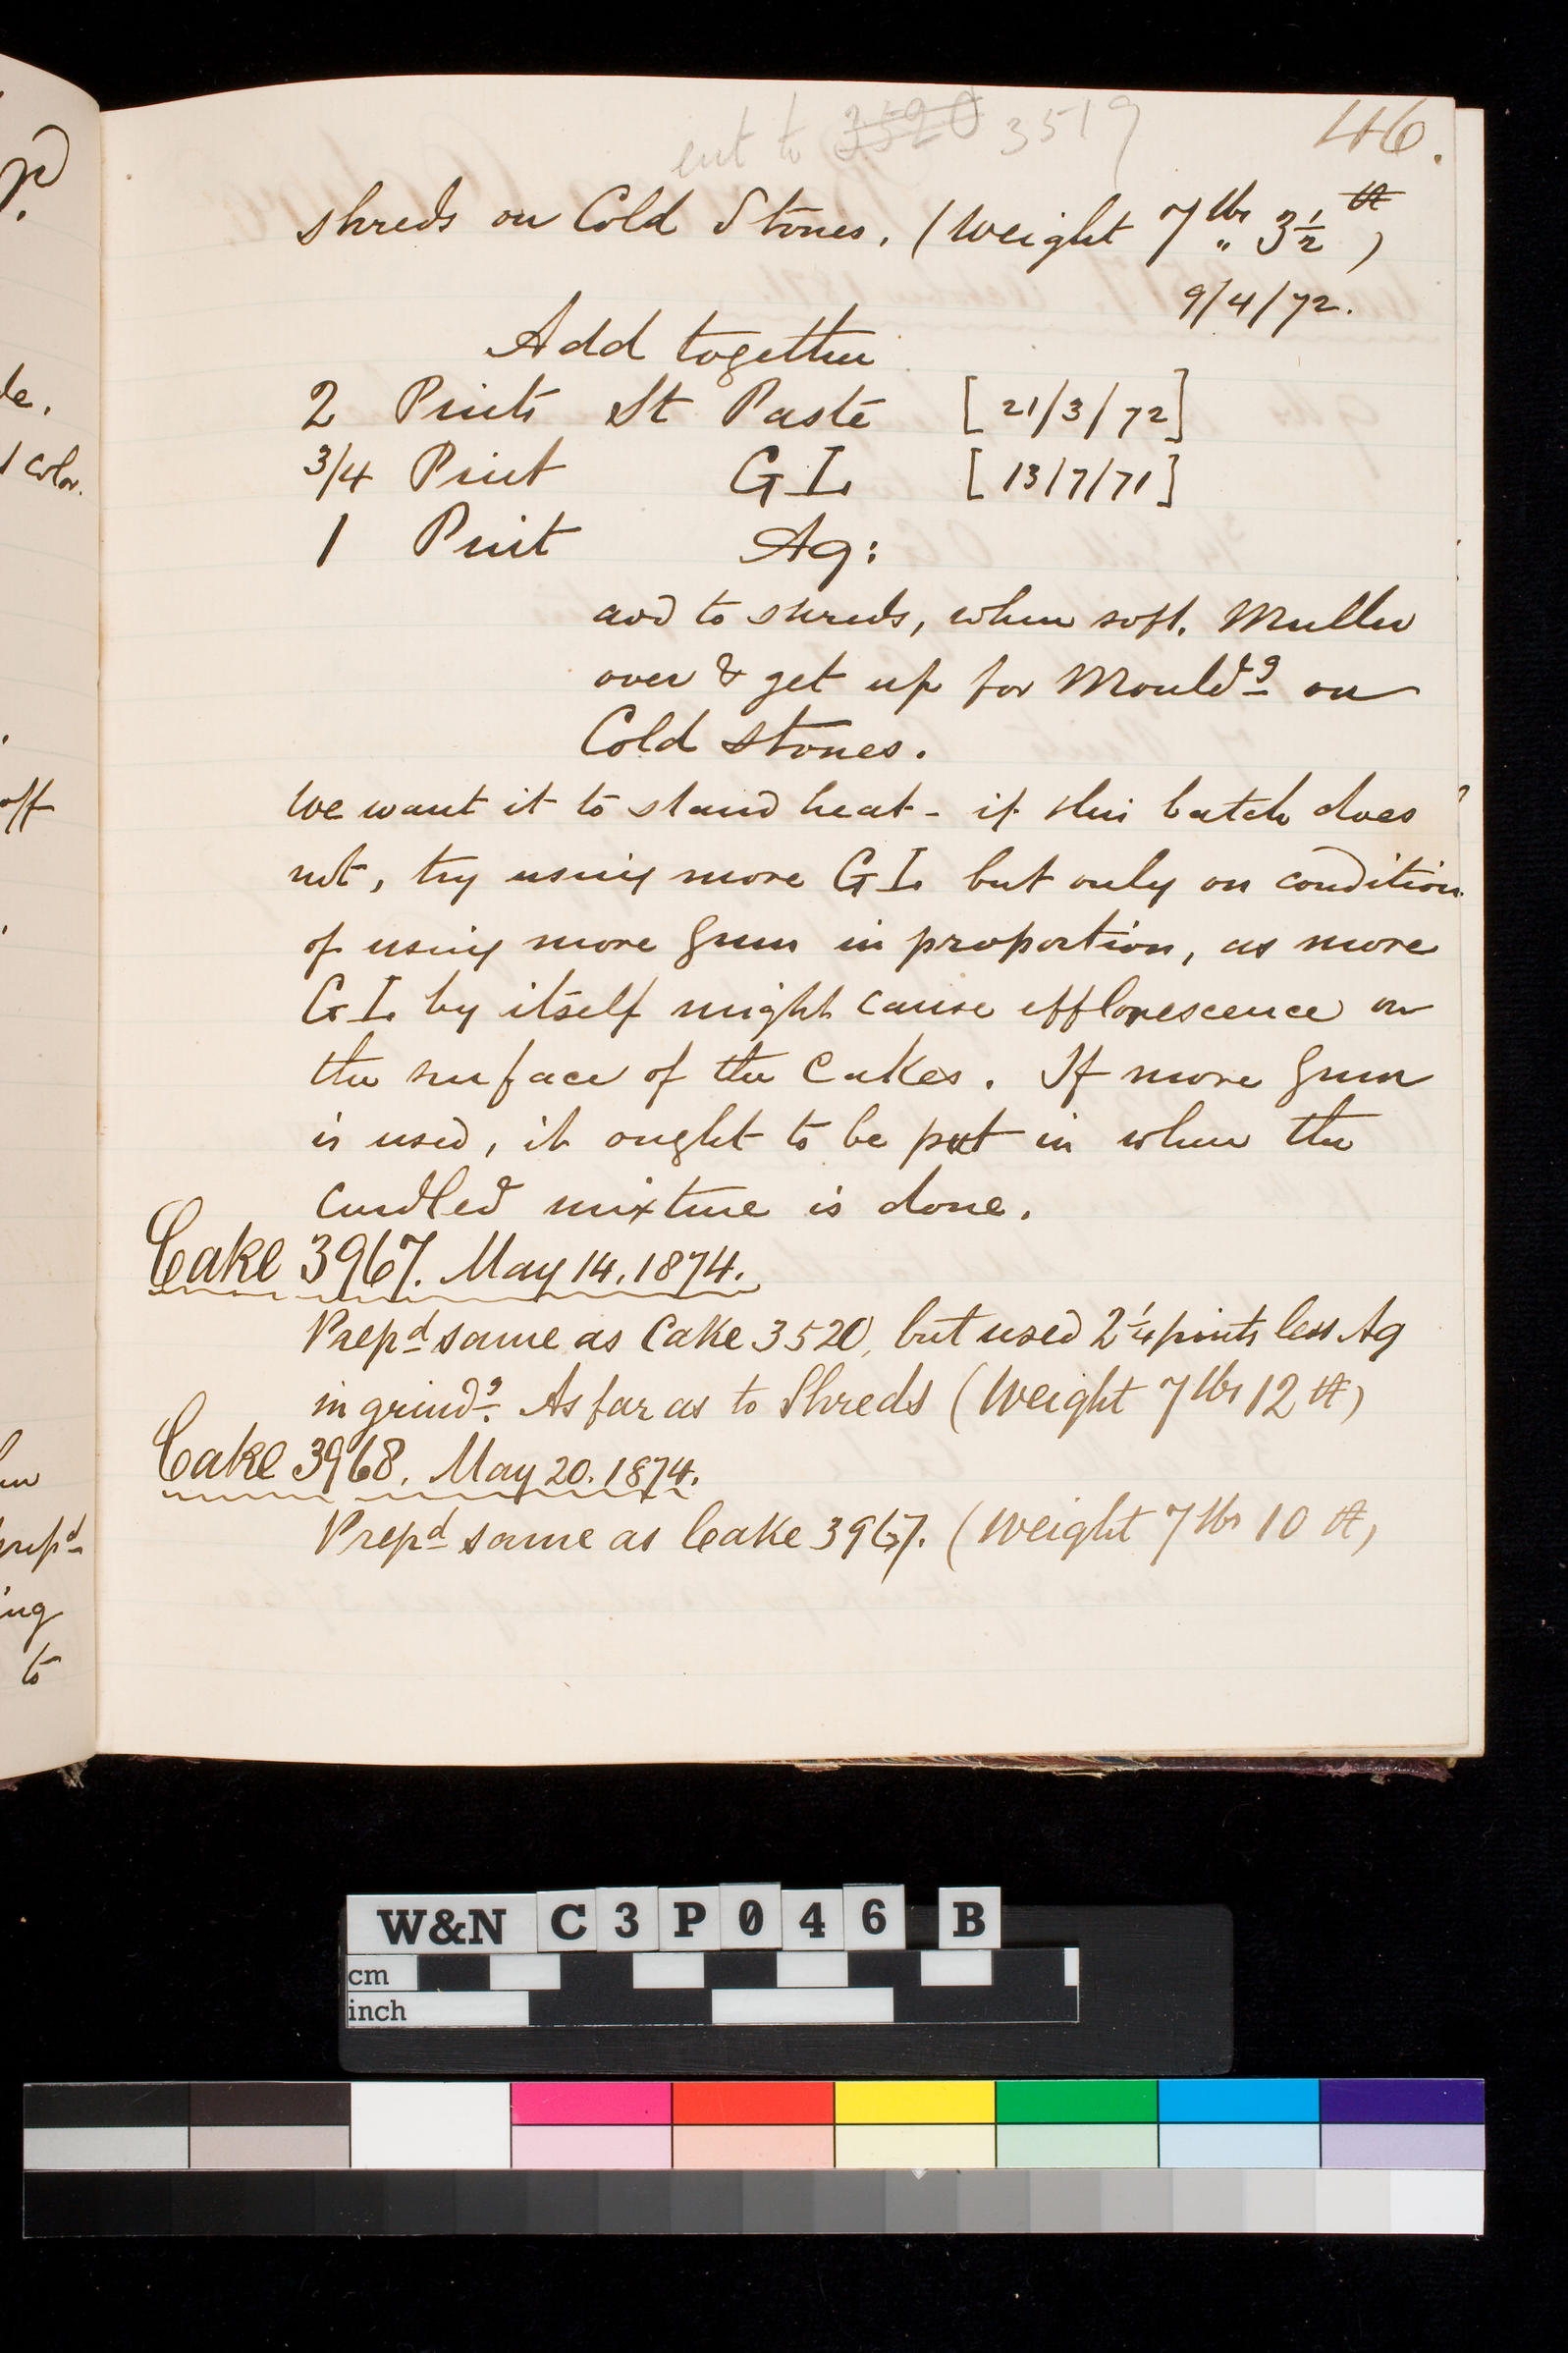 46.
3520 3519
shreds on Cold Stones. (Weight 7 lbs „ 3½ ℔)
9/4/72.
Add together
2 Pints St Paste [21/3/72]
3/4 Pint GI. [13/7/71]
1 Pint Aq:
add to shreds, when soft. Muller
over & get up for Mouldg on
Cold Stones.
We want it to stand heat - if this batch does
not, try using more GI. but only on condition
of using more Gum in proportion, as more
GI. by itself might cause efflorescence on
the surface of the Cakes. If more Gum
is used, it ought to be put in when the
curdled mixture is done.
Cake 3967. May 14. 1874.
Prepd same as Cake 3520, but used 2¼ pints less Aq
in grindg. As far as to Shreds (Weight 7 lbs 12 ℔)
Cake 3968. May 20. 1874.
Prepd same as Cake 3967. (Weight 7 lbs 10 ℔)
de.
color.
off
prepd
ing
to
W&N C3P046 B
cm
inch